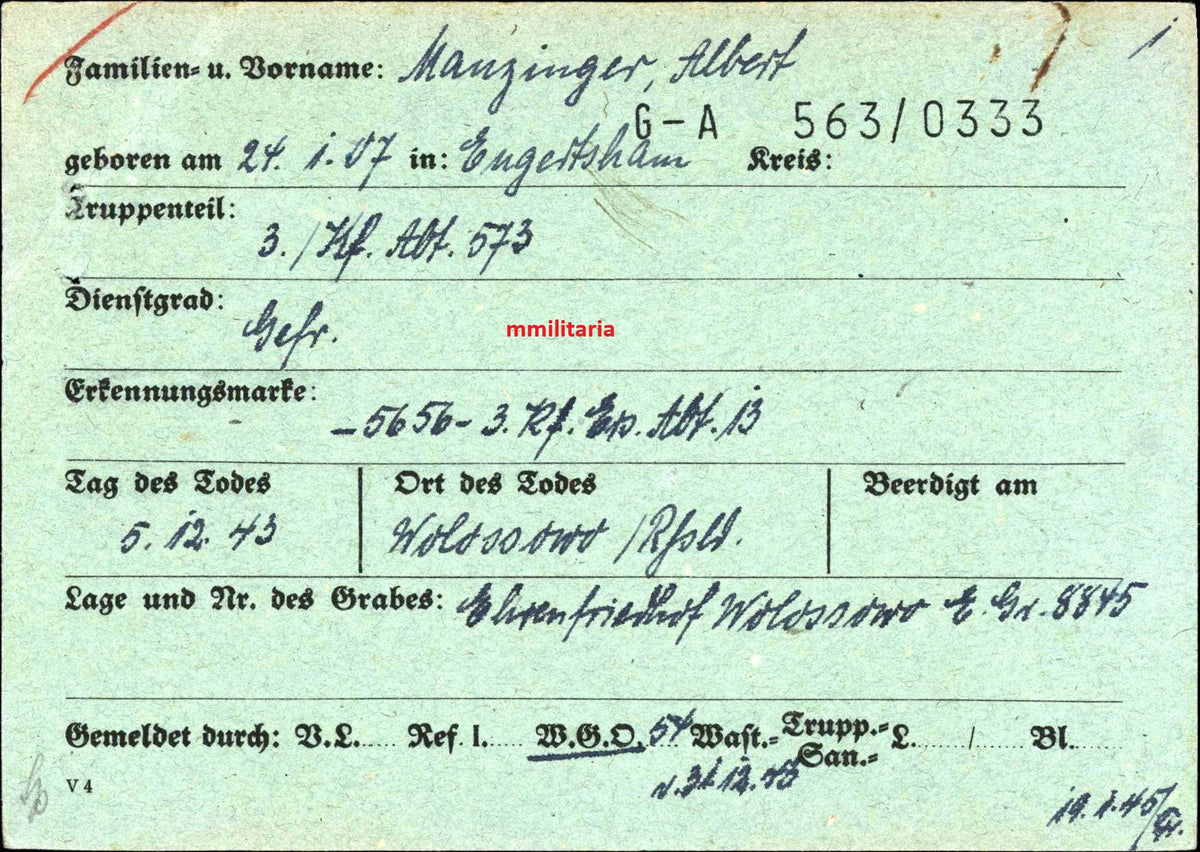 Familien- u. Vorname: Manzinger, Albert
G-A 563/0333
geboren am 24. 1. 07 in: Engertsham Kreis:
Truppenteil:
3./Kf. Abt. 573
Dienstgrad:
Gefr.
mmilitaria
Erkennungsmarke:
-5656- 3. Kf. Ers. Abt. 13
Tag des Todes Ort des Todes Beerdigt am
5. 12. 43 Wolossowo /Rssld.
Lage und Nr. des Grabes: Ehrenfriedhof Wolossowo E. Gr. 8845
Gemeldet durch: V.L. Ref. I. W.G.O. 54 Wast.- Trupp.- San.- L. / Bl.
v. 31. 12. 43
V 4
19. 1. 45/